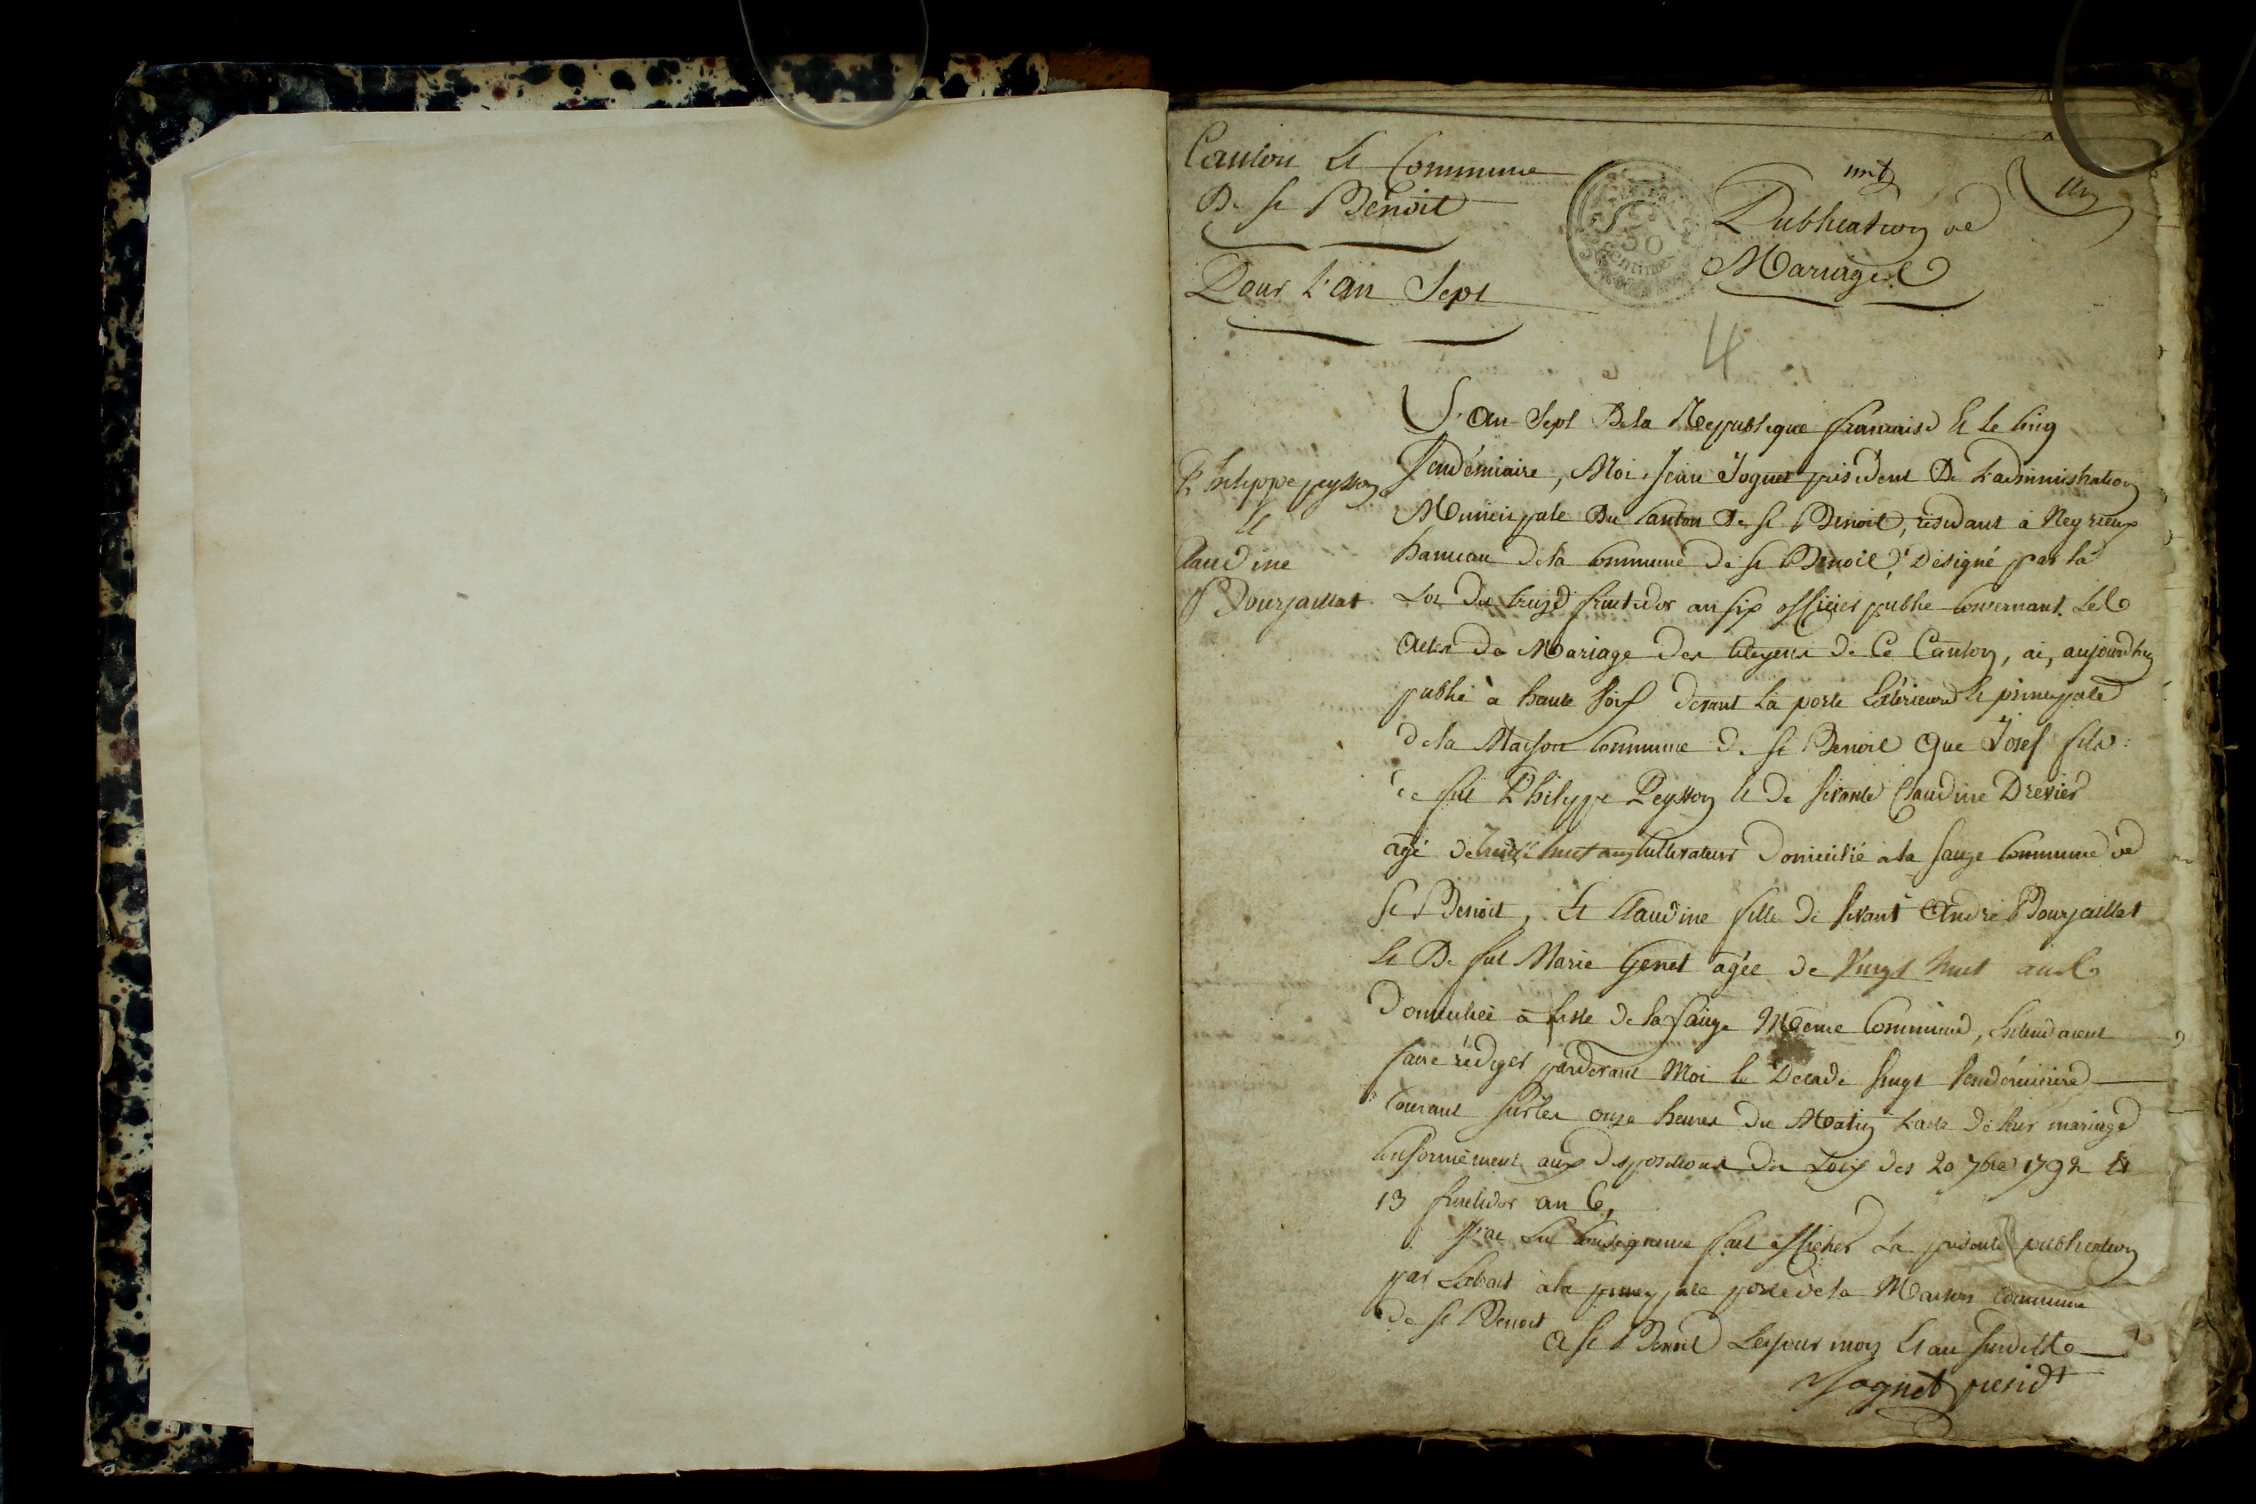 Canton Et Commune
De St Benoit
Pour L'an Sept
50
Centimes
Publication de
Mariages
un
4
Philippe peysson
Et
Claudine
Bourjaillat
L'an Sept De la Republique francaise Et le Cinq
Vendémiaire, Moi Jean Joguet président De L'administration
Municipale Du Canton De St Benoit, résidant à Neyrieux
hameau dela Commune de St Benoit, Désigné par la
Loi Du treize fructidor an six officier public Concernant Les
Actes De Mariage Des Citoyens de Ce Canton, ai, aujourdhuy
publié à haute Voix devant La porte Extérieure Et principale
dela Maison Commune de St Benoit Que Josef fils
de fut Philippe Peysson Et de Vivante Claudine Drevier
agé de huit ans Cultivateur Domicilié ala Sauge Commune de
St Benoit, Et Claudine fille De Vivant André Bourjaillat
Et De fut Marie Genet agée de Vingt huit ans
Domiciliée à de la Sauge Même Commune, Entendaient
faire rédiger pardevant Moi le Décade Vingt Vendémiaire
Courant Sur les onze heures du Matin L'acte de leur mariage
Conformement aux dispositions des Loix des 20 7bre 1792 Et
13 fructidor an 6,
J'ai fait afficher La présente publication
par Extrait à la principale porte de la Maison Commune
de St Benoit
A St Benoit Les jour mois Et an Susdits
Joguet présidt